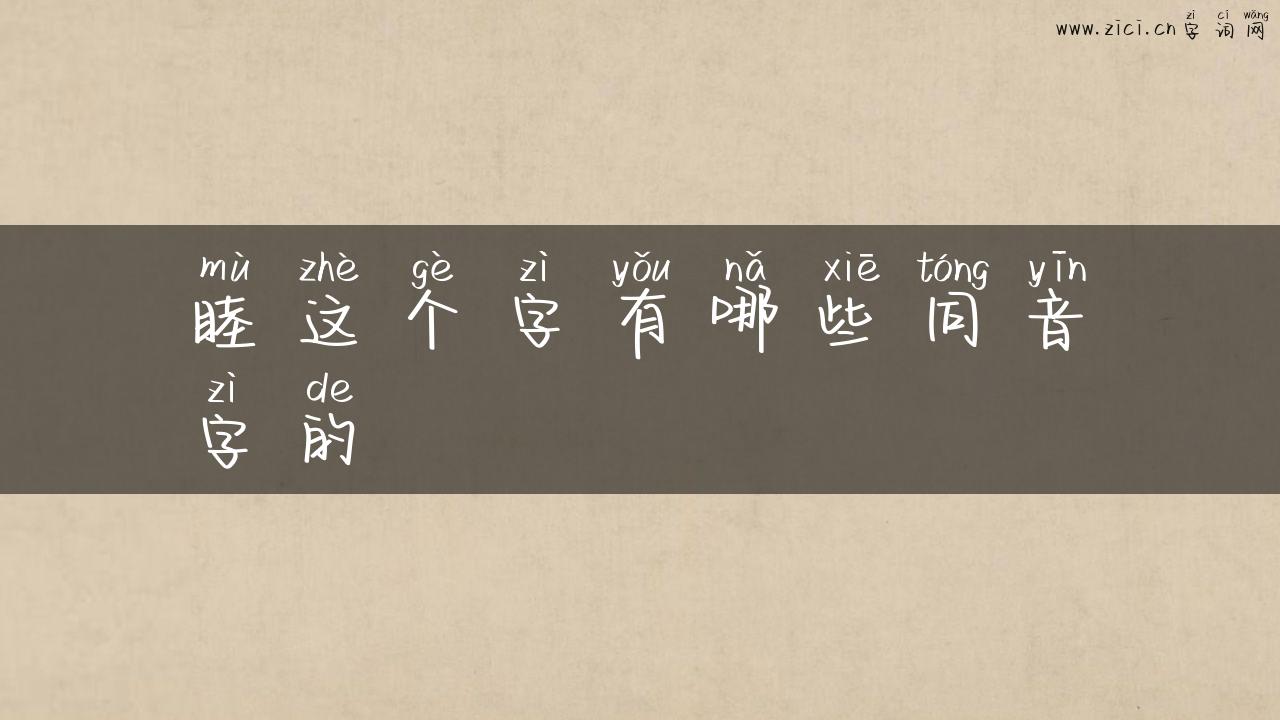 zì cí wǎng
www.zici.cn 字词网
mù zhè gè zì yǒu nǎ xiē tóng yīn
睦这个字有哪些同音
zì de
字的